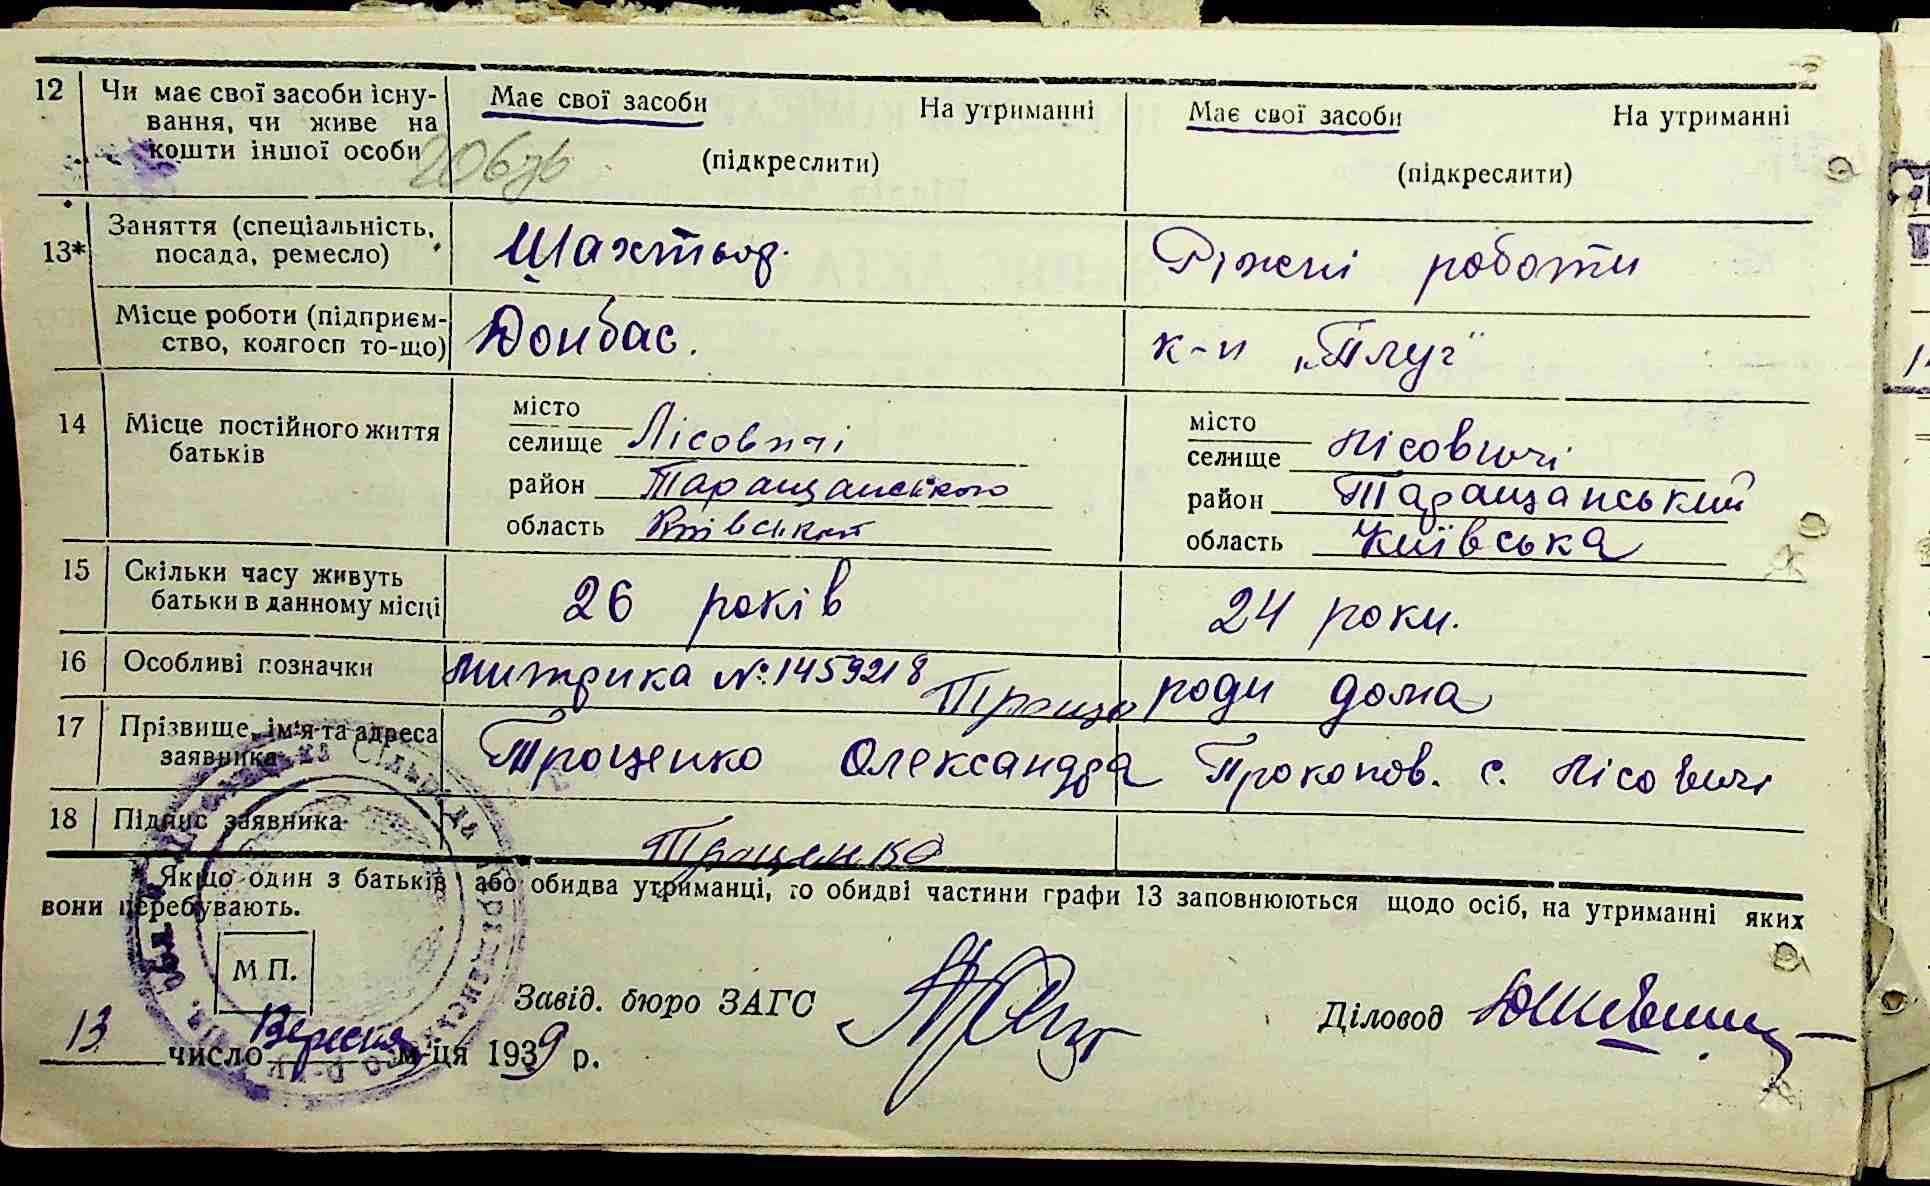 12 Чи має свої засоби існу-
вання, чи живе на
кошти іншої особи
Має свої засоби На утриманні
(підкреслити)
Має свої засоби На утриманні
(підкреслити)
13* Заняття (спеціальність,
посада, ремесло)
Шахтьор.
Ріжні роботи
Місце роботи (підприєм-
ство, колгосп то-що)
Донбас.
к-п „Плуг"
14 Місце постійного життя
батьків
місто
селище Лісовичі
район Таращанського
область Київської
місто
селище Лісовичі
район Таращанський
область Київська
15 Скільки часу живуть
батьки в данному місці
26 років
24 роки.
16 Особливі позначки
№ 1459218
роди дома
17 Прізвище, ім'я та адреса
заявника
Троценко Олександра Прокопов. с. Лісовичі
18 Підпис заявника
Троценко
Якщо один з батьків або обидва утриманці, то обидві частини графи 13 заповнюються щодо осіб, на утриманні яких
вони перебувають.
М П.
Завід. бюро ЗАГС
Діловод
13 число Вересня м-ця 1939 р.